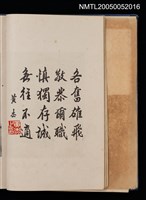 NMTL20050052016
各奮雄飛
敬恭爾職
慎獨存誠
無往不適